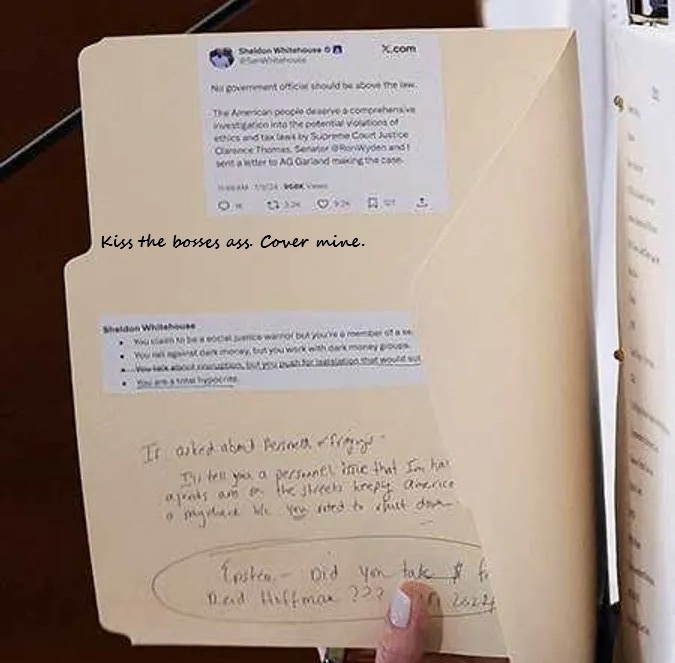 Sheldon Whitehouse
@SenWhitehouse
X.com
No government official should be above the law.
The American people deserve a comprehensive
investigation into the potential violations of
ethics and tax laws by Supreme Court Justice
Clarence Thomas. Senator @RonWyden and I
sent a letter to AG Garland making the case.
7/9/24 Views
Kiss the bosses ass. Cover mine.
Sheldon Whitehouse
• You claim to be a social justice warrior but you're a member of a
• You rail against dark money, but you work with dark money groups.
• You talk about corruption, but you push for legislation that would
• You are a total hypocrite.
If asked about
I'll tell you a personnel issue that I'm
agents are on the streets keepg America
a paycheck b/c you voted to shut down
Epstein - Did you take $
Reid Hoffman ???